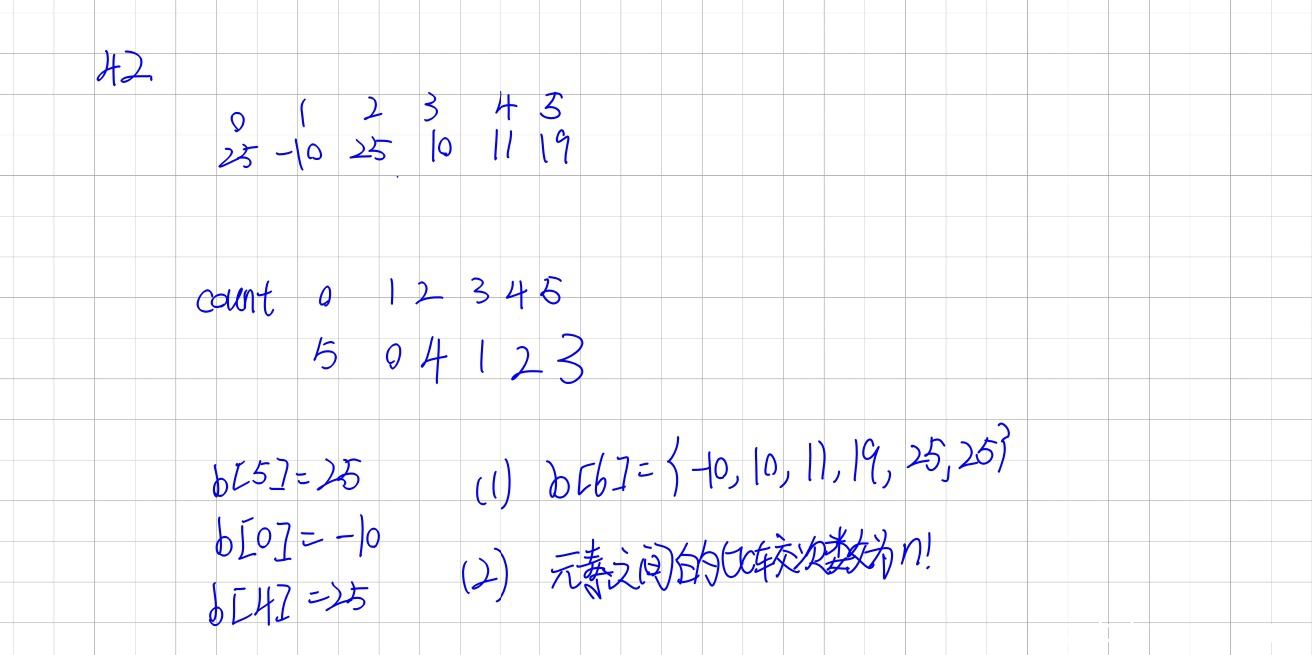 42
0 1 2 3 4 5
25 -10 25 10 11 19
count 0 1 2 3 4 5
5 0 4 1 2 3
b[5]=25
(1) b[6]={-10, 10, 11, 19, 25, 25}
b[0]=-10
(2) 元素之间的比较次数为n!
b[4]=25